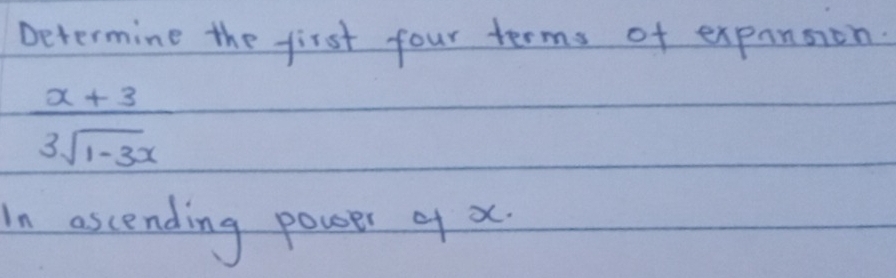 Determine the first four terms of expansion.
x + 3
3√1-3x
In ascending power of x.